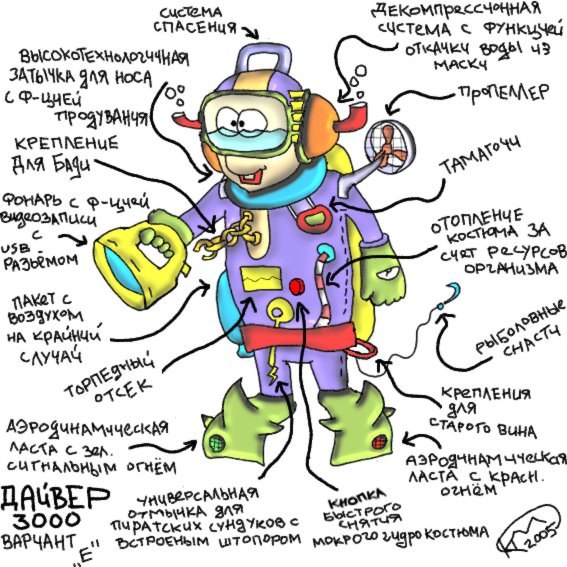 СИСТЕМА
СПАСЕНИЯ
ДЕКОМПРЕССИОННАЯ
СИСТЕМА С ФУНКЦИЕЙ
ОТКАЧКИ ВОДЫ ИЗ
МАСКИ
ВЫСОКОТЕХНОЛОГИЧНАЯ
ЗАТЫЧКА ДЛЯ НОСА
С Ф-ЦИЕЙ
ПРОДУВАНИЯ
ПРОПЕЛЛЕР
КРЕПЛЕНИЕ
ДЛЯ БАДИ
ТАМАГОЧИ
ФОНАРЬ С Ф-ЦИЕЙ
ВИДЕОЗАПИСИ
С
USB-
РАЗЪЁМОМ
ОТОПЛЕНИЕ
КОСТЮМА ЗА
СЧЕТ РЕСУРСОВ
ОРГАНИЗМА
ПАКЕТ С
ВОЗДУХОМ
НА КРАЙНИЙ
СЛУЧАЙ
РЫБОЛОВНЫЕ
СНАСТИ
ТОРПЕДНЫЙ
ОТСЕК
КРЕПЛЕНИЯ
ДЛЯ
СТАРОГО ВИНА
АЭРОДИНАМИЧЕСКАЯ
ЛАСТА С ЗЕЛ.
СИГНАЛЬНЫМ ОГНЁМ
АЭРОДИНАМИЧЕСКАЯ
ЛАСТА С КРАСН.
ОГНЁМ
УНИВЕРСАЛЬНАЯ
ОТМЫЧКА ДЛЯ
ПИРАТСКИХ СУНДУКОВ С
ВСТРОЕНЫМ ШТОПОРОМ
КНОПКА
БЫСТРОГО
СНЯТИЯ
МОКРОГО ГИДРОКОСТЮМА
ДАЙВЕР
3000
ВАРИАНТ
„Е"
2005